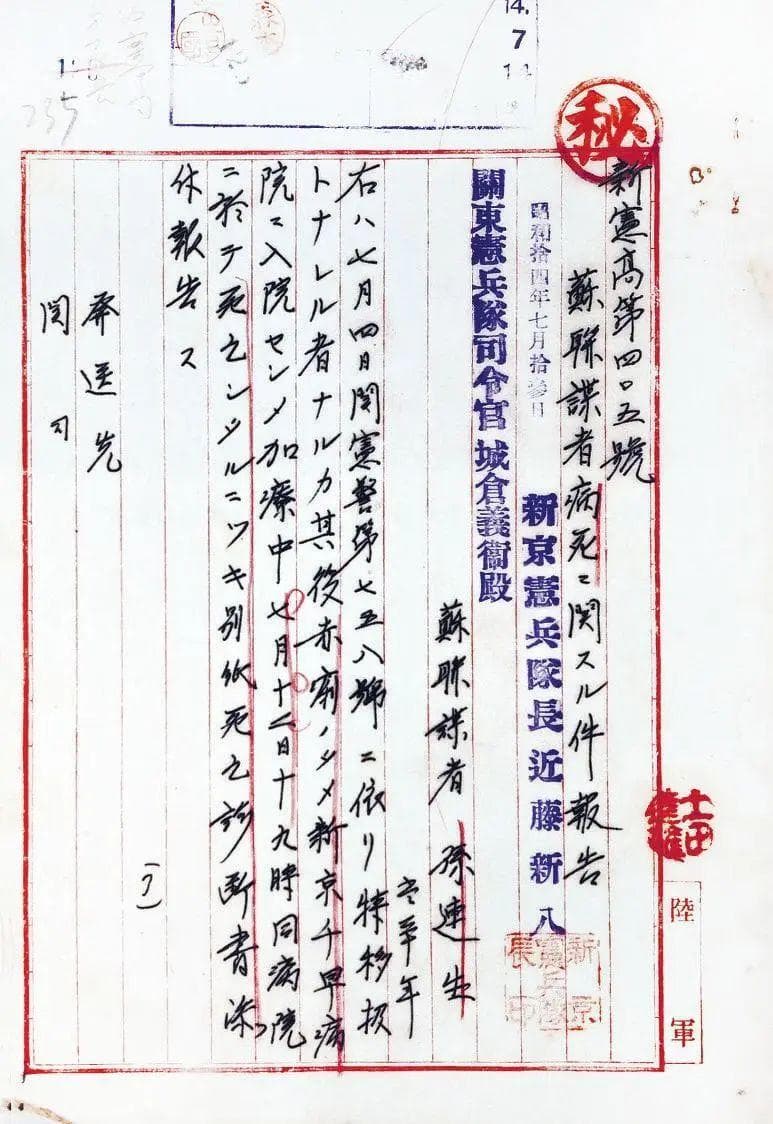 14.
7
14
235
秘
新憲高第四〇五號
蘇聯諜者病死ニ関スル件報告
昭和拾四年七月拾參日
新京憲兵隊長近藤新八
關東憲兵隊司令官城倉義衞殿
蘇聯諜者 孫連生
年
右ハ七月四日関憲警第七五八號ニ依リ特移扱
トナレル者ナルカ其後赤痢ノタメ新京千早病
院ニ入院セシメ加療中七月十二日十九時同病院
ニ於テ死亡シタルニツキ別紙死亡診断書添
付報告ス
発送先
関司
(了)
陸軍